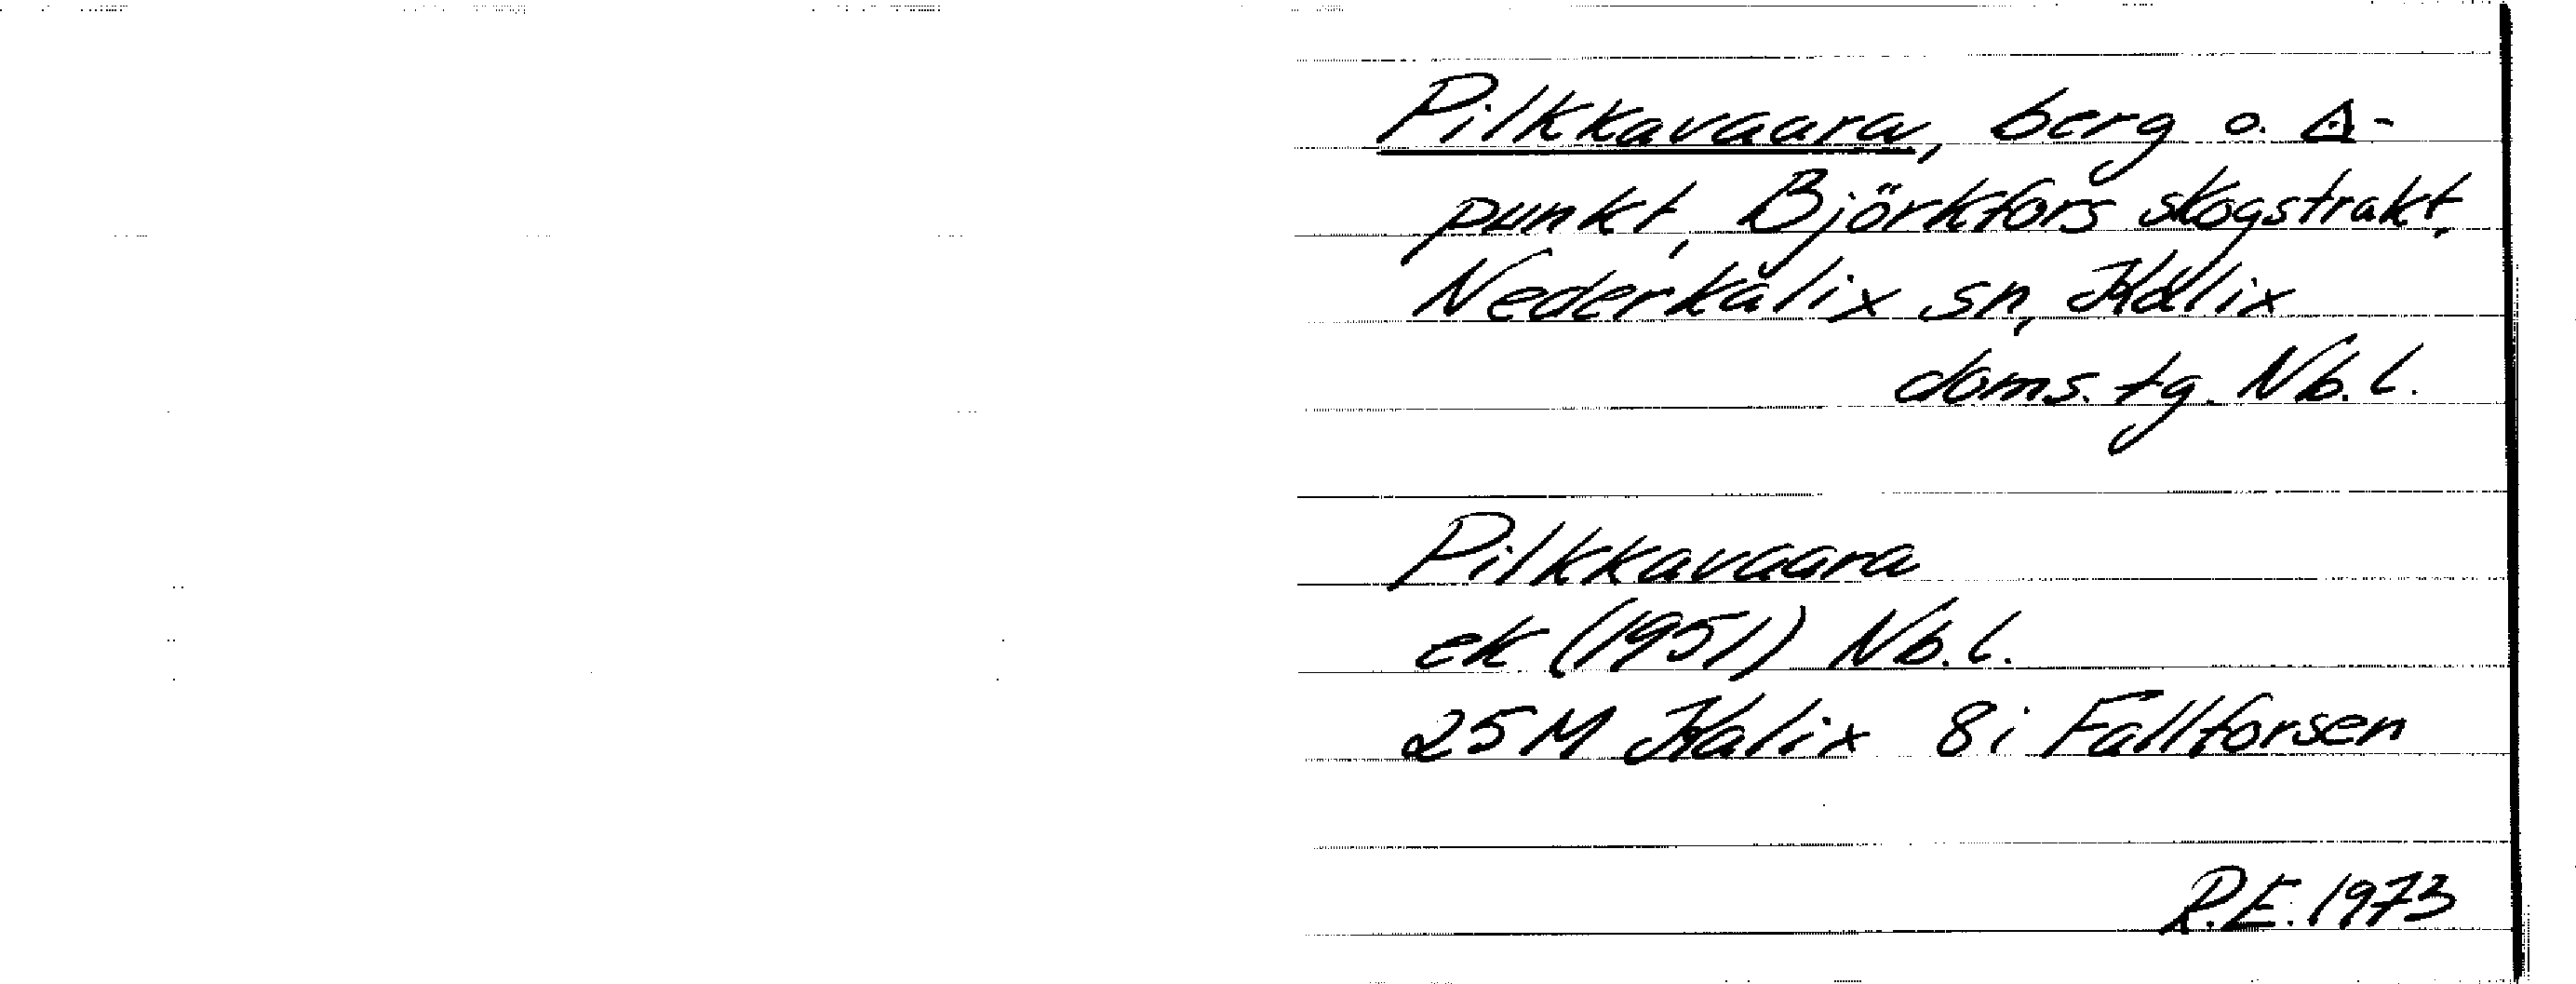 Pilkkavaara, berg o. ∆-
punkt, Björkfors skogstrakt,
Nederkalix sn, Kalix
doms. tg. Nb. l.
Pilkkavaara
ek (1951) Nb. l.
25 M Kalix 8i Fällforsen
R.E. 1973